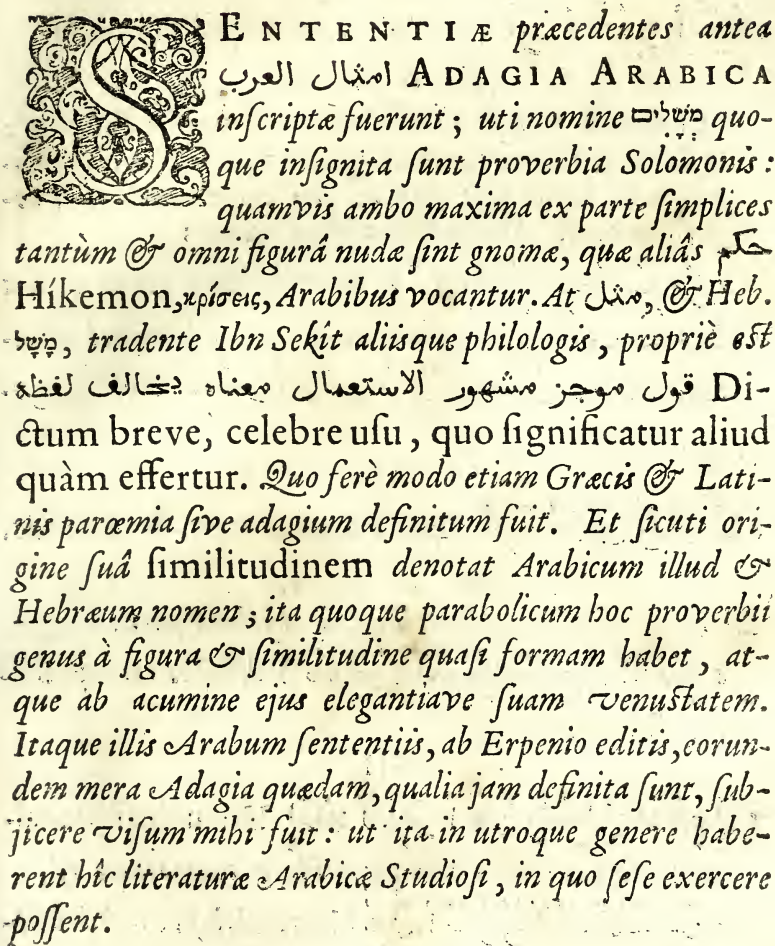 SENTENTIÆ præcedentes antea
امثال العرب ADAGIA ARABICA
inſcriptæ fuerunt; uti nomine מְשָׁלִים quo-
que inſignita ſunt proverbia Solomonis:
quamvis ambo maxima ex parte ſimplices
tantùm & omni figurâ nudæ ſint gnomæ, quæ aliâs حكم
Híkemon, κρίσεις, Arabibus vocantur. At مثل, & Heb.
מָשָׁל, tradente Ibn Sekît aliisque philologis, propriè est
قول موجز مشهور الاستعمال معناه يخالف لفظه Di-
ctum breve, celebre uſu, quo ſignificatur aliud
quàm effertur. Quo ferè modo etiam Græcis & Lati-
nis parœmia ſive adagium definitum fuit. Et ſicuti ori-
gine ſuâ ſimilitudinem denotat Arabicum illud &
Hebræum nomen; ita quoque parabolicum hoc proverbii
genus à figura & ſimilitudine quaſi formam habet, at-
que ab acumine ejus elegantiave ſuam venuſtatem.
Itaque illis Arabum ſententiis, ab Erpenio editis, eorun-
dem mera Adagia quædam, qualia jam definita ſunt, ſub-
jicere viſum mihi fuit: ut ita in utroque genere habe-
rent hîc literaturæ Arabicæ Studioſi, in quo ſeſe exercere
poſſent.